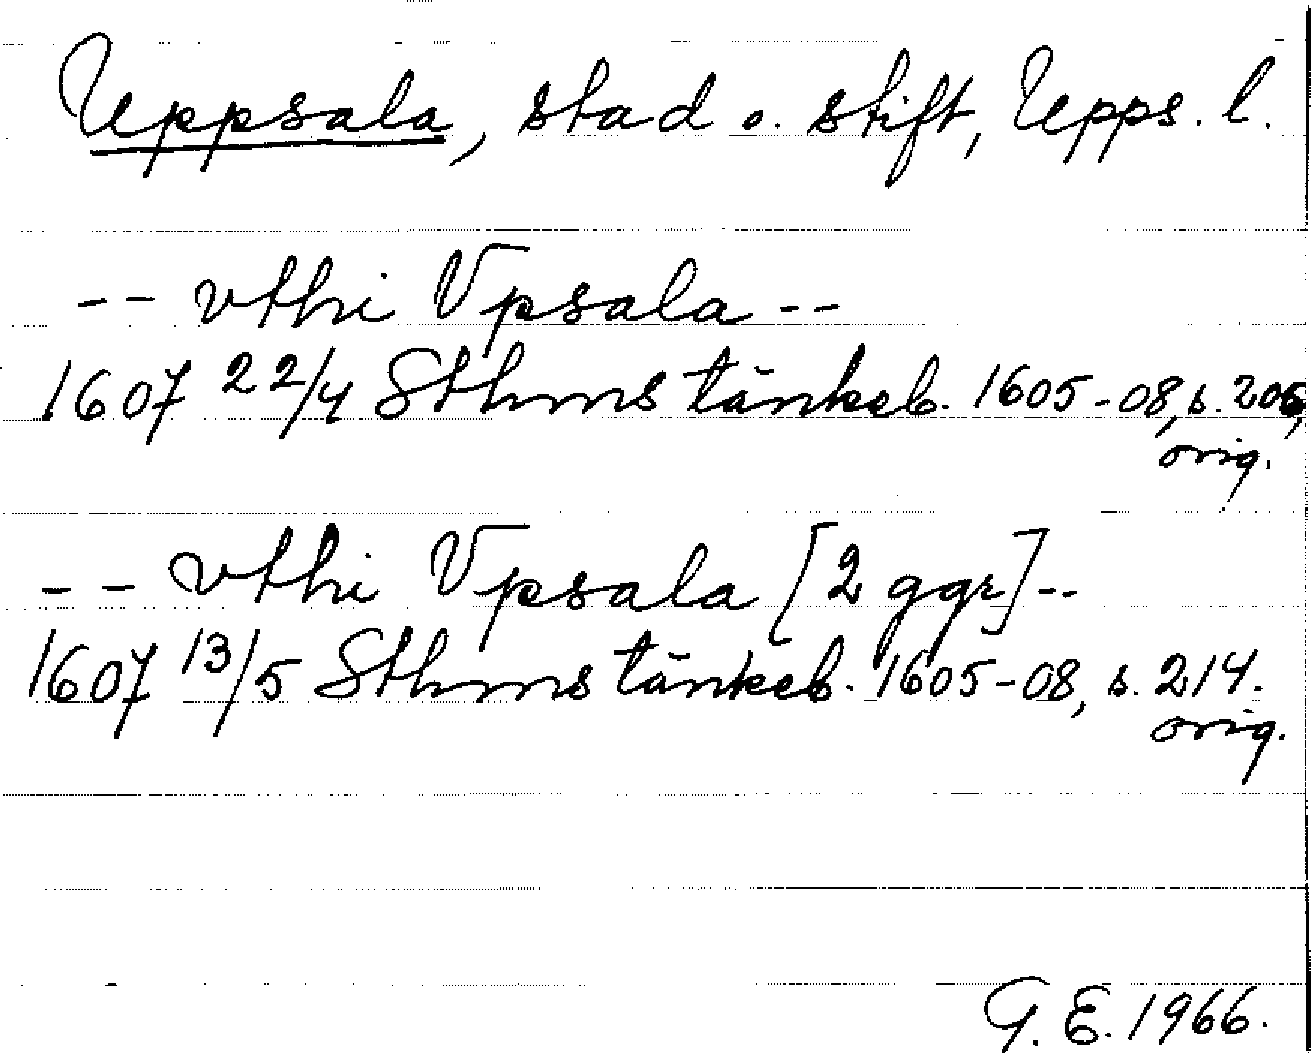 Uppsala, stad o. stift, Upps. l.
-- vthi Vpsala --
1607 22/4 Sthms tänkeb. 1605-08, s. 206,
orig.
-- vthi Vpsala [2 ggr] --
1607 13/5 Sthms tänkeb. 1605-08, s. 214.
orig.
G. E. 1966.